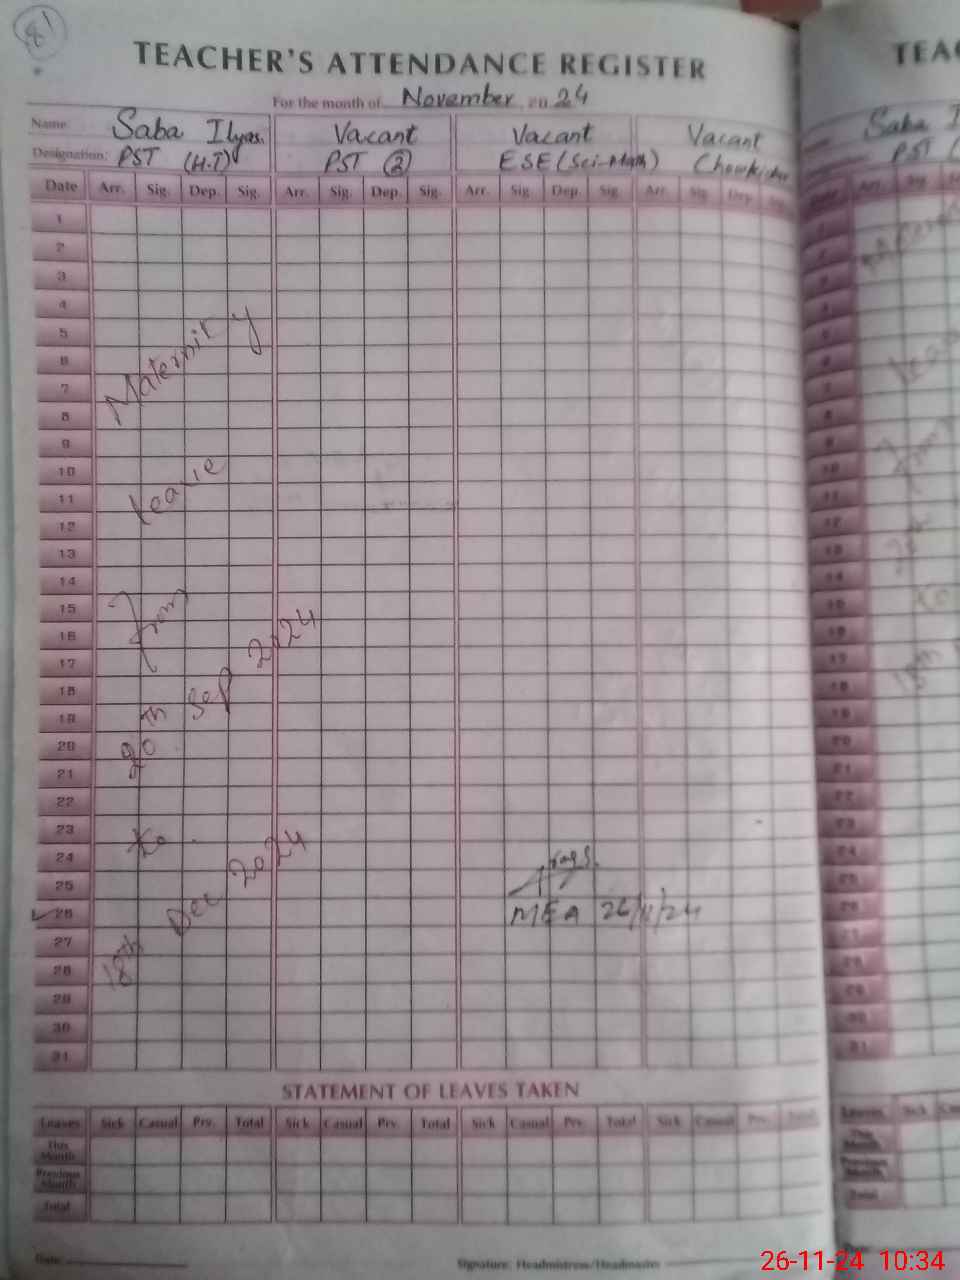 8
TEACHER'S ATTENDANCE REGISTER
For the month of November 2024
Name: Saba Ilyas. Vacant Vacant Vacant
Designation: PST (H.T) PST (2) ESE (Sci-Math) Chowkidar
Date Arr. Sig. Dep. Sig. Arr. Sig. Dep. Sig. Arr. Sig. Dep. Sig. Arr. Sig. Dep. Sig.
1
2
3
4
5
6
7
8
9
10
11
12
13
14
15
16
17
18
19
20
21
22
23
24
25
26
27
28
29
30
31
Maternity
leave
from
20th Sep 2024
to
18th Dec 2024
MEA 26/11/24
STATEMENT OF LEAVES TAKEN
Leaves Sick Casual Prv. Total Sick Casual Prv. Total Sick Casual Prv. Total Sick Casual Prv. Total
This Month
Previous Month
Total
Date:
Signature: Headmistress/Headmaster
TEAC
Saba I
PST (
Arr. Sig
leave
from
20th
to
18th
Leaves Sick
This Month
Previous Month
Total
26-11-24 10:34